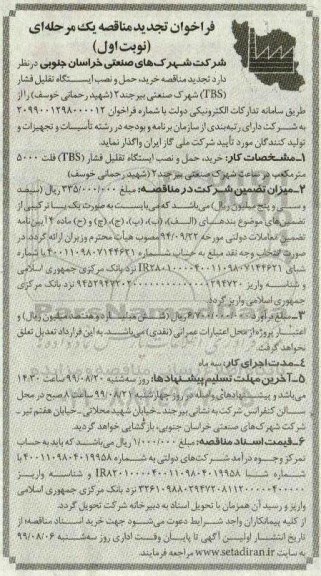 فراخوان تجدید مناقصه یک مرحله‌ای
(نوبت اول)
شرکت شهرک‌های صنعتی خراسان جنوبی در نظر
دارد تجدید مناقصه خرید، حمل و نصب ایستگاه تقلیل فشار
(TBS) شهرک صنعتی بیرجند ۲ (شهید رحمانی خوسف) را از
طریق سامانه تدارکات الکترونیکی دولت با شماره فراخوان ۲۰۹۹۰۰۱۲۹۸۰۰۰۰۱۲
به شرکت دارای رتبه‌بندی از سازمان برنامه و بودجه در رشته تأسیسات و تجهیزات و
تولید کنندگان مورد تأیید شرکت ملی گاز ایران واگذار نماید.
۱ـ مشخصات کار: خرید، حمل و نصب ایستگاه تقلیل فشار (TBS) فلت ۵۰۰۰
مترمکعب در ساعت شهرک صنعتی بیرجند ۲ (شهید رحمانی خوسف)
۲ـ میزان تضمین شرکت در مناقصه: مبلغ ۳۳۵/۰۰۰/۰۰۰ ریال (سیصد
و سی و پنج میلیون ریال) می‌باشد که می‌بایست به صورت یک یا ترکیبی از
تضمین‌های موضوع بندهای (الف)، (ب)، (پ)، (ج)، (چ) و (ح) ماده ۴ آیین‌نامه
تضمین معاملات دولتی مورخه ۹۴/۰۹/۲۲ مصوب هیأت محترم وزیران ارائه گردد. در
صورت انتخاب وجه نقد مبلغ به حساب شماره ۴۰۰۱۱۰۹۸۰۷۱۴۴۶۲۱ با شماره
شبای IR۲۸۰۱۰۰۰۰۴۰۰۱۱۰۹۸۰۷۱۴۴۶۲۱ نزد بانک مرکزی جمهوری اسلامی
و شناسه واریز نزد بانک مرکزی
جمهوری اسلامی واریز گردد.
۳ـ مبلغ برآورد اولیه ۶/۷۰۰/۰۰۰/۰۰۰ ریال (شش میلیارد و هفتصد میلیون ریال) و
اعتبار پروژه از محل اعتبارات عمرانی (نقدی) می‌باشد. به این قرارداد تعدیل تعلق
نخواهد گرفت.
۴ـ مدت اجرای کار: سه ماه
۵ـ آخرین مهلت تسلیم پیشنهادها: روز سه‌شنبه ۹۹/۰۸/۲۰ ساعت ۱۴:۳۰
می‌باشد و پیشنهادهای واصله در روز چهارشنبه ۹۹/۰۸/۲۱ ساعت ۸ صبح در محل
سالن کنفرانس شرکت به نشانی بیرجند ـ خیابان شهید محلاتی ـ خیابان هفتم تیر ـ
شرکت شهرک‌های صنعتی خراسان جنوبی، بازگشایی خواهد گردید.
۶ـ قیمت اسناد مناقصه: مبلغ ۱/۰۰۰/۰۰۰ ریال می‌باشد که باید به حساب
تمرکز وجوه درآمد شرکت‌های دولتی به شماره ۴۰۰۱۱۰۹۸۰۴۰۱۹۹۵۸ با
شماره شبا IR۸۲۰۱۰۰۰۰۴۰۰۱۱۰۹۸۰۴۰۱۹۹۵۸ و شناسه واریز
نزد بانک مرکزی جمهوری اسلامی
واریز و رسید آن همزمان با تحویل اسناد به دبیرخانه شرکت تحویل گردد.
از کلیه پیمانکاران واجد شرایط دعوت می‌شود جهت خرید اسناد مناقصه از
تاریخ انتشار اولین آگهی تا پایان وقت اداری روز سه‌شنبه ۹۹/۰۸/۰۶
به سایت www.setadiran.ir مراجعه فرمایند.